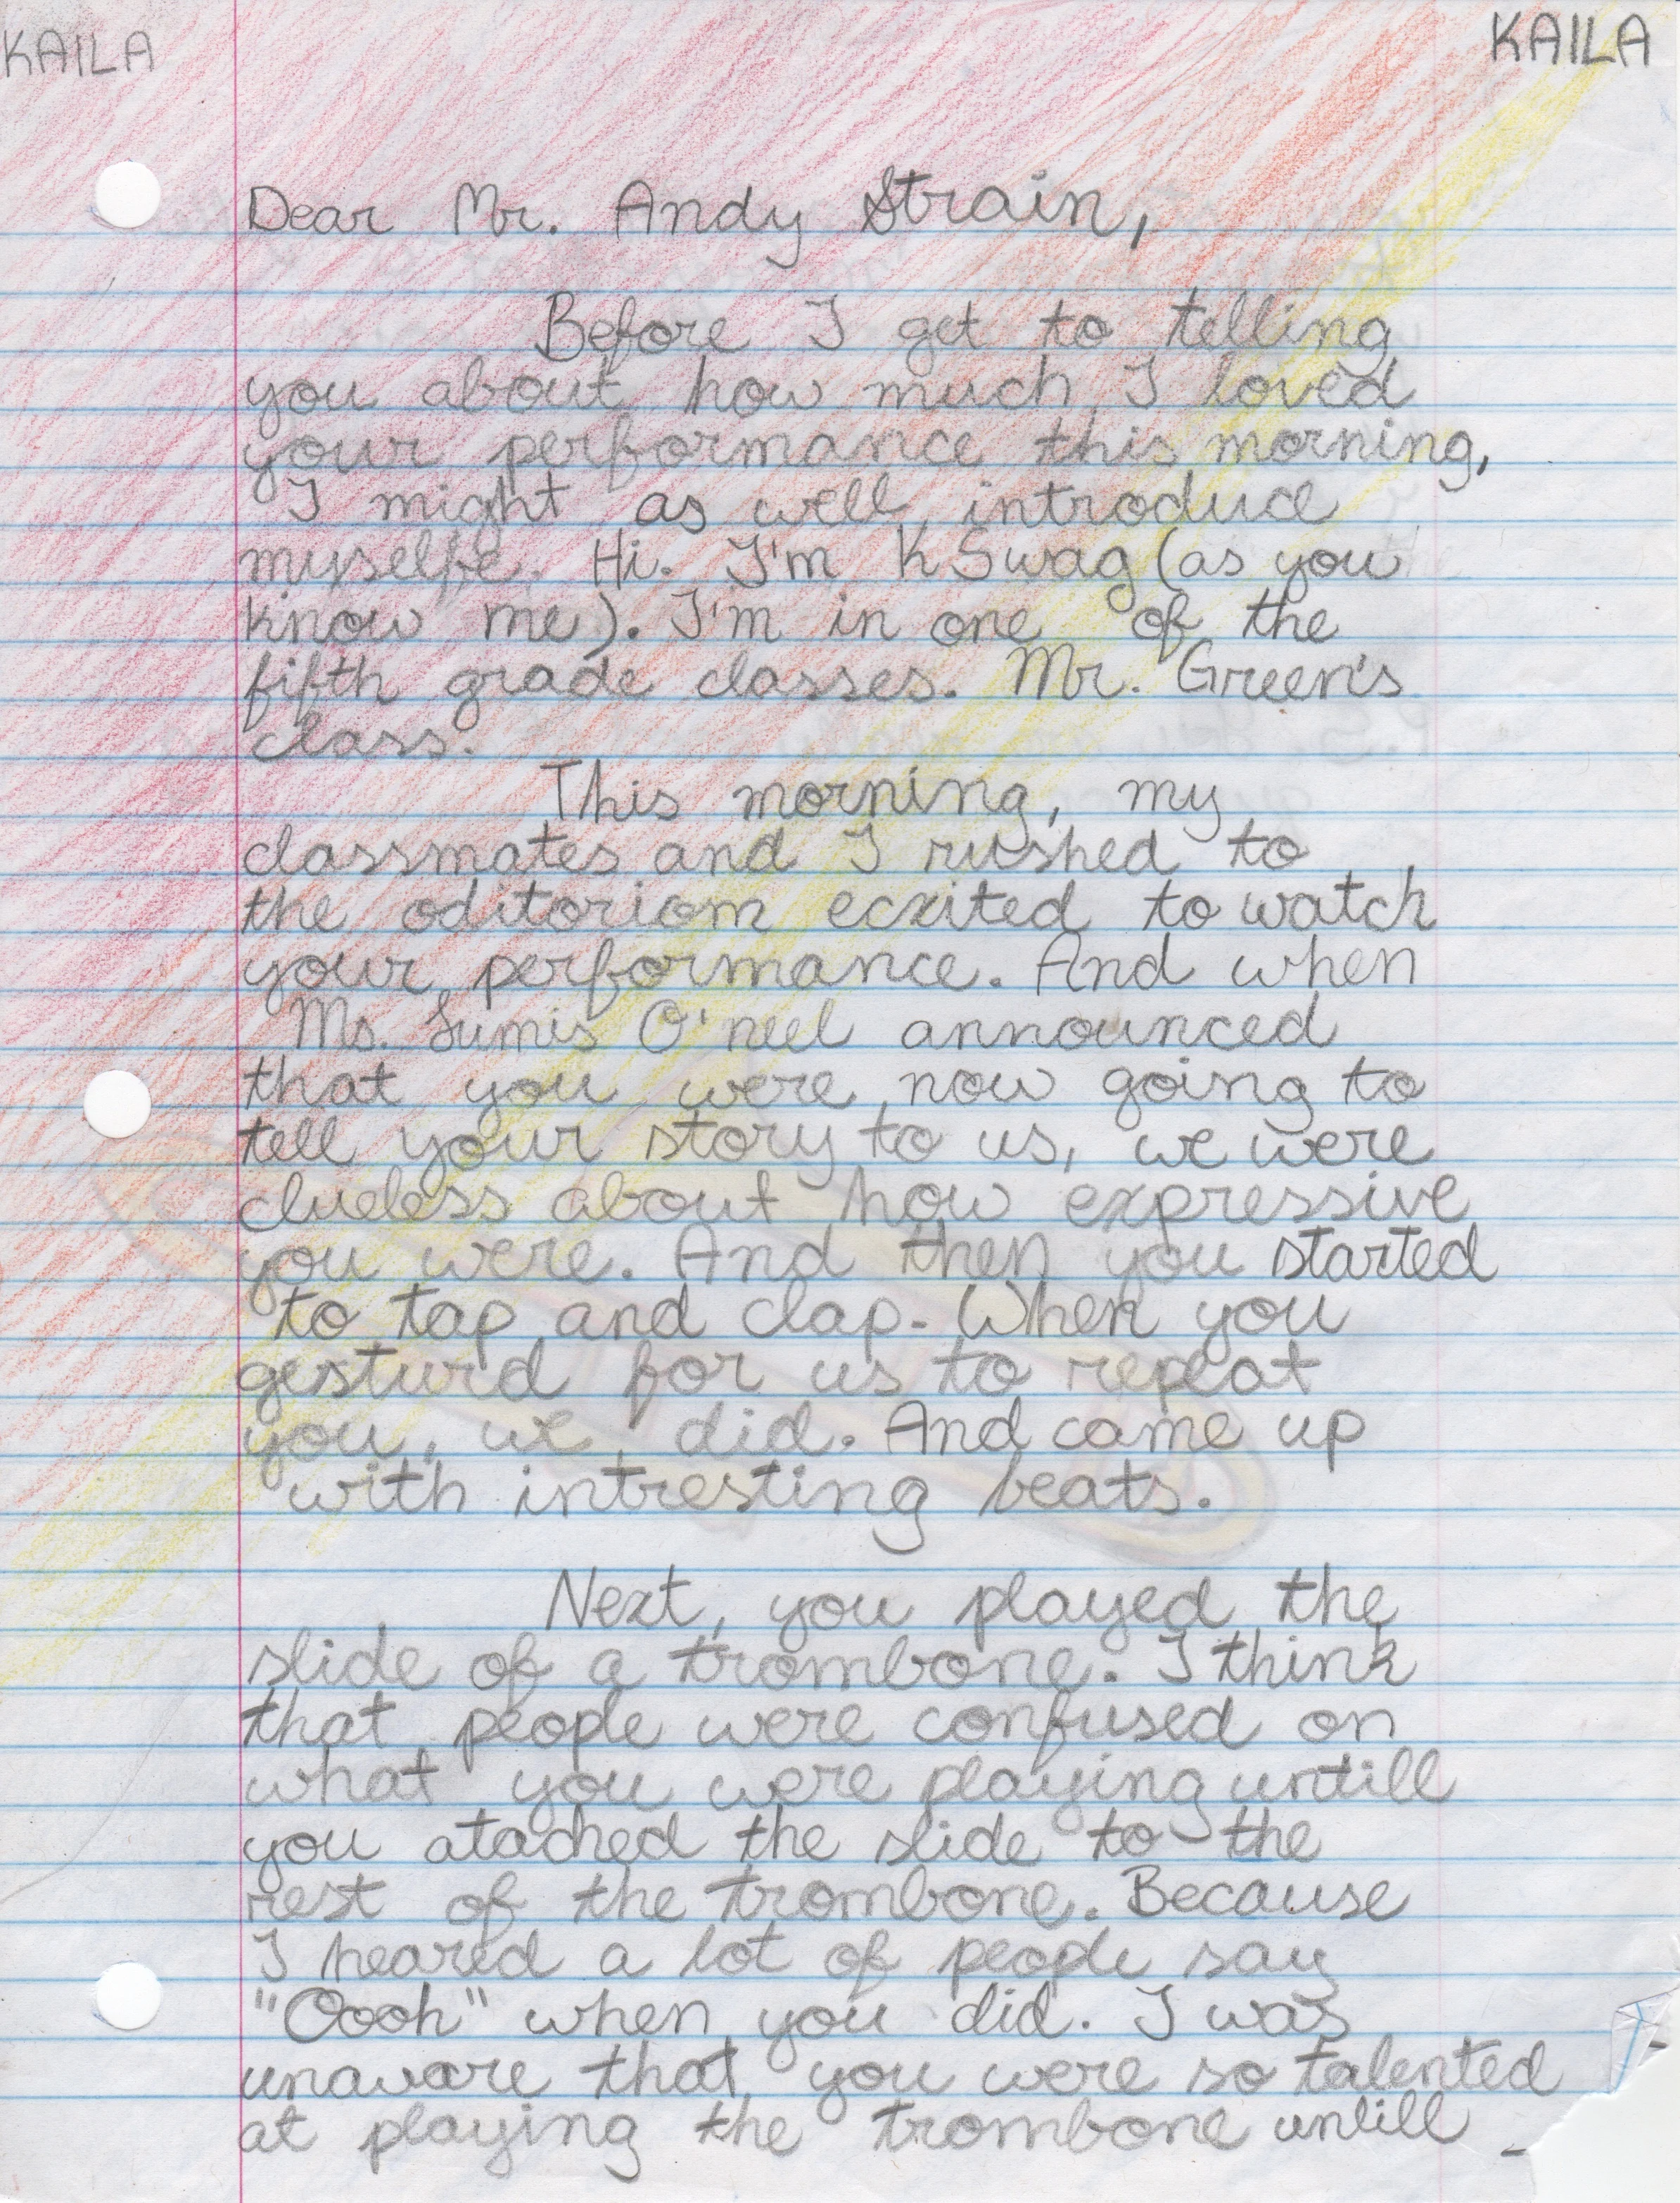 KAILA KAILA
Dear Mr. Andy Strain,
Before I get to telling
you about how much I loved
your performance this morning,
I might as well introduce
myselfe. Hi. I'm K Swag (as you
know me). I'm in one of the
fifth grade classes. Mr. Green's
class.
This morning, my
classmates and I rushed to
the oditoriom ecxited to watch
your performance. And when
Ms. Sumis O'neel announced
that you were now going to
tell your story to us, we were
clueless about how expressive
you were. And then you started
to tap and clap. When you
gesturd for us to repeat
you, we did. And came up
with intresting beats.
Next, you played the
slide of a trombone. I think
that people were confused on
what you were playing untill
you atached the slide to the
rest of the trombone. Because
I heared a lot of people say
"Oooh" when you did. I was
unaware that you were so talented
at playing the trombone untill